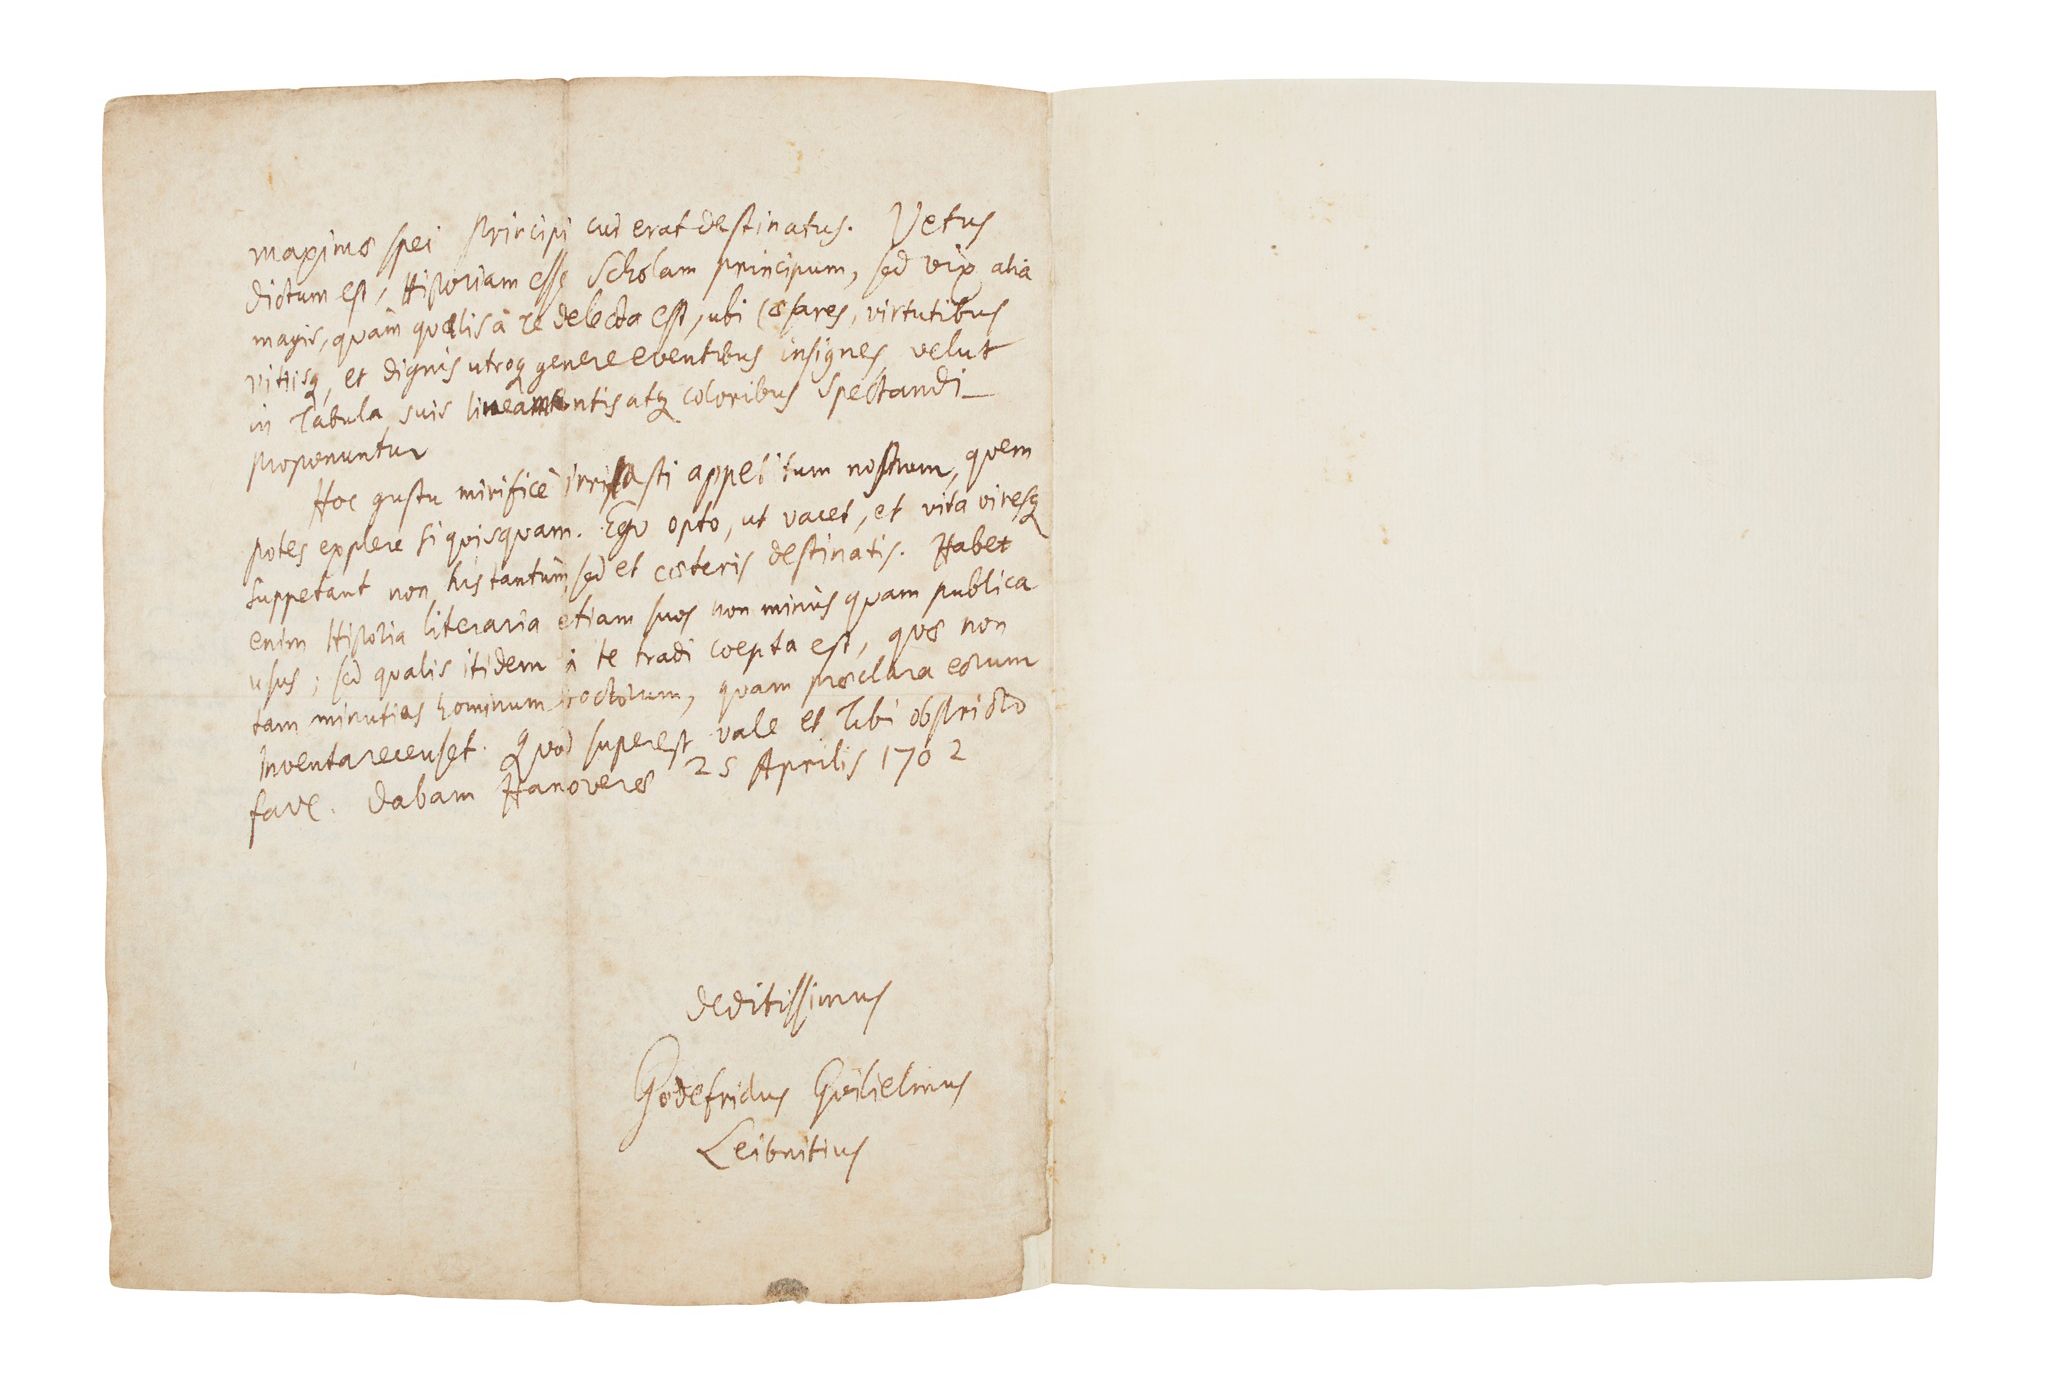 maximæ spei Principi cui erat destinatus. Vetus
dictum est, Historiam esse Scholam principum, sed vix alia
magis, quàm qualis à Te delecta est, ubi Cæsares, virtutibus
vitiisq, et dignis utroq genere eventibus insignes, velut
in Tabula suis lineamentis atq coloribus spectandi
proponuntur
Hoc gustu mirificè irritasti appetitum nostrum, quem
potes explere si quisquam. Ego opto, ut vacet, et vita viresq
suppetant non his tantùm, sed et cæteris destinatis. Habet
enim Historia literaria etiam suos non minùs quam publica
usus; sed qualis itidem à te tradi coepta est, quæ non
tam minutias hominum doctorum, quam præclara eorum
inventa recenset. Quod superest vale et Tibi obstricto
fave. dabam Hanoveræ 25 Aprilis 1702
deditissimus
Godefridus Guilielmus
Leibnitius